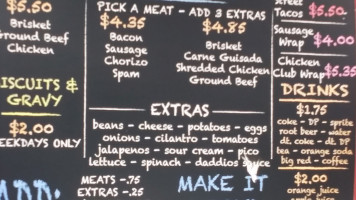 $5.50
Brisket
Ground Beef
Chicken
BISCUITS &
GRAVY
$2.00
WEEKDAYS ONLY
PICK A MEAT - ADD 3 EXTRAS
$4.35
Bacon
Sausage
Chorizo
Spam
$4.85
Brisket
Carne Guisada
Shredded Chicken
Ground Beef
EXTRAS
beans - cheese - potatoes - eggs
onions - cilantro - tomatoes
jalapenos - sour cream - pico
lettuce - spinach - daddios sauce
MEATS -.75
EXTRAS -.25
MAKE IT
Street
Tacos $5.50
Sausage
Wrap $4.00
Chicken
Club Wrap $5.35
DRINKS
$1.75
coke - DP - sprite
root beer - water
dt. coke - dt. DP
tea - orange soda
big red - coffee
$2.00
orange juice
apple juice